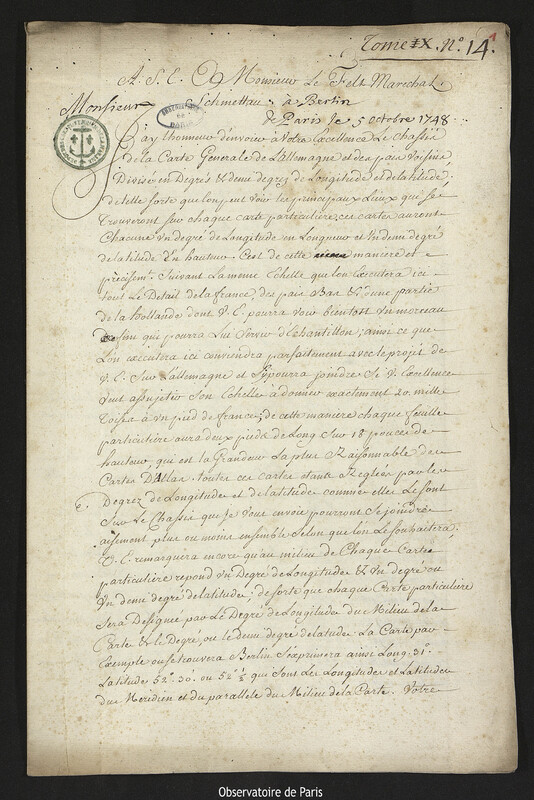 Tome IX. N.o 14.
A. S. E. Monsieur Le Felt Marechal
Schmettau à Berlin
Monsieur
de Paris le 5 octobre 1748.
J'ay l'honneur d'envoier à Votre Excellence Le Chassis
de la Carte Generale de L'allemagne et des païs voisins
Divisé en Degrés & demi degrez de Longitude et de latitude;
de telle sorte que l'on peut voir les principaux Lieux qui se
trouveront sur chaque carte particuliere; ces cartes auront
Chacune un degré de Longitude en Longueur et un demi degré
de latitude en hauteur. C'est de cette maniere et
précisemt. Suivant La meme Echelle que l'on Executera ici
tout Le Detail de la france, des païs Bas & d'une partie
de la hollande dont V. E. pourra voir bientost un morceau
fini qui pourra Lui Servir d'Echantillon; ainsi ce que
L'on exécutera ici conviendra parfaitement avec le projet de
V. E. Sur L'allemagne et s'y pourra joindre si V. Excellence
veut assujetir Son Echelle à donner exactement 20. mille
Toises à un pied de france; de cette manière chaque feuille
particuliere aura deux pieds de Long Sur 18 pouces de
hauteur, qui est la Grandeur La plus Raisonnable des
Cartes d'Atlas. toutes ces cartes etant Reglées par les
Degrez de Longitude et de latitude comme elles Le sont
Sur Le Chassis que Je vous envoie pourront se joindre
aisement plus ou moins ensemble Selon que l'on Le Souhaitera.
V. E. remarquera encore qu'au milieu de Chaque Carte
particuliere repond un Degré de Longitude & un degré ou
un demi degré de latitude; de sorte que chaque Carte particuliere
Sera Designée par Le Degré de Longitude du Milieu de la
Carte & le Degré, ou le demi degré de latitude. La Carte par
Exemple ou se trouvera Berlin s'exprimera ainsi Long. 31°.
Latitude 52°. 30. ou 52° ½ qui Sont Les Longitudes et Latitudes
du Meridien et du parallele du Milieu de la Carte. Votre
Observatoire de Paris